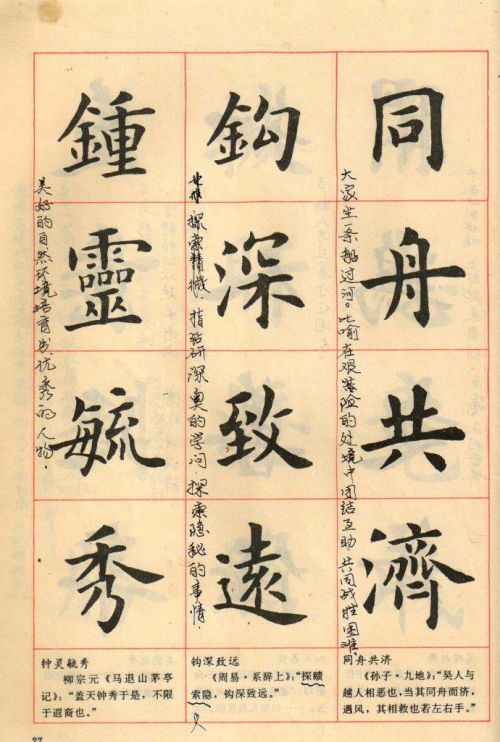 同舟共濟
大家坐一条船过河。比喻在艰险的处境中团结互助 共同战胜困难.
鈎深致遠
探索精微. 指钻研深奥的学问. 探索隐秘的事情.
鍾靈毓秀
美好的自然环境培育出优秀的人物.
同舟共济
《孙子·九地》：“吴人与
越人相恶也，当其同舟而济，
遇风，其相救也若左右手。”
钩深致远
《周易·系辞上》：“探赜
索隐，钩深致远。”
钟灵毓秀
柳宗元《马退山茅亭
记》：“盖天钟秀于是，不限
于遐裔也。”